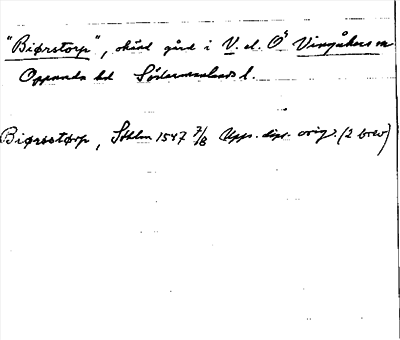 "Biørstorp", okänd gård i V. el. Ö Vingåkers sn
Oppunda hd Södermanlands l.
Biørsstørp, Sthlm 1547 7/8 Upps. dipl. orig. (2 brev)